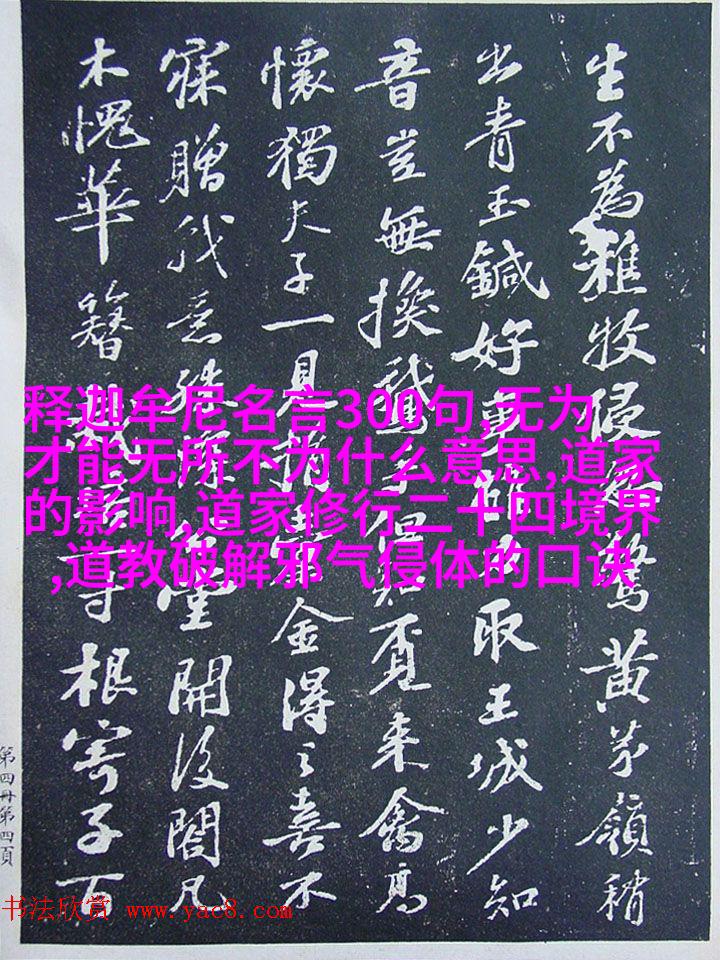 生不為稚牧侵驚黃茅領稍
出青玉鍼好事取王城少知
音豈無換鵝手來禽高
懷獨夫子一見捐金得之喜不
寐贈我意殊堂開後閣凡
木愧華簪影一寸根寄子百
释迦牟尼名言300句,无为
才能无所不为什么意思,道家
的影响,道家修行二十四境界
,道教破解邪气侵体的口诀
第四冊第四頁
书法欣赏 www.yac8.com